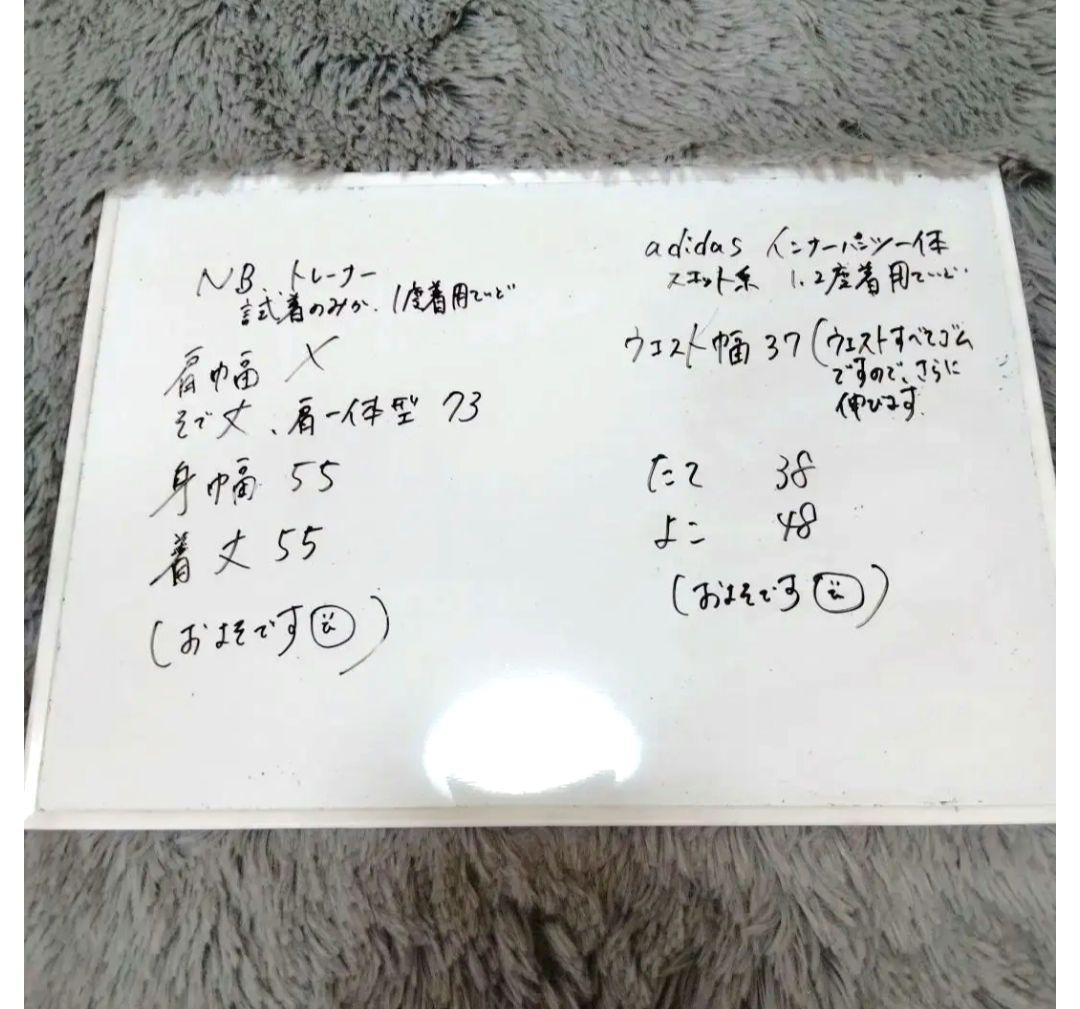 NB、トレーナー
試着のみか、1度着用ていど
肩幅 ×
そで丈、肩一体型 73
身幅 55
着丈 55
(およそです)
adidas インナーパンツ一体
スエット系 1、2度着用ていど
ウエスト幅 37(ウエストすべてゴム
ですので、さらに
伸びます
たて 38
よこ 48
(およそです)